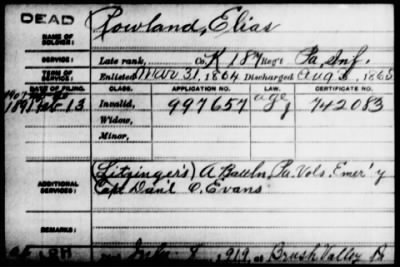 DEAD
Rowland, Elias
NAME OF SOLDIER:
SERVICE: Late rank, Co. K 187 Reg't Pa. Inf.
TERM OF SERVICE: Enlisted Mar 31, 1864 Discharged Aug 3, 1865
DATE OF FILING. CLASS. APPLICATION NO. LAW. CERTIFICATE NO.
1891 Feb 13 Invalid, 997657 age 742083
Widow,
Minor,
ADDITIONAL SERVICES: (Litzinger's) A Battln. Pa. Vols. Emer'y
Capt Dan'l O. Evans
REMARKS:
8, 1919, at Brush Valley